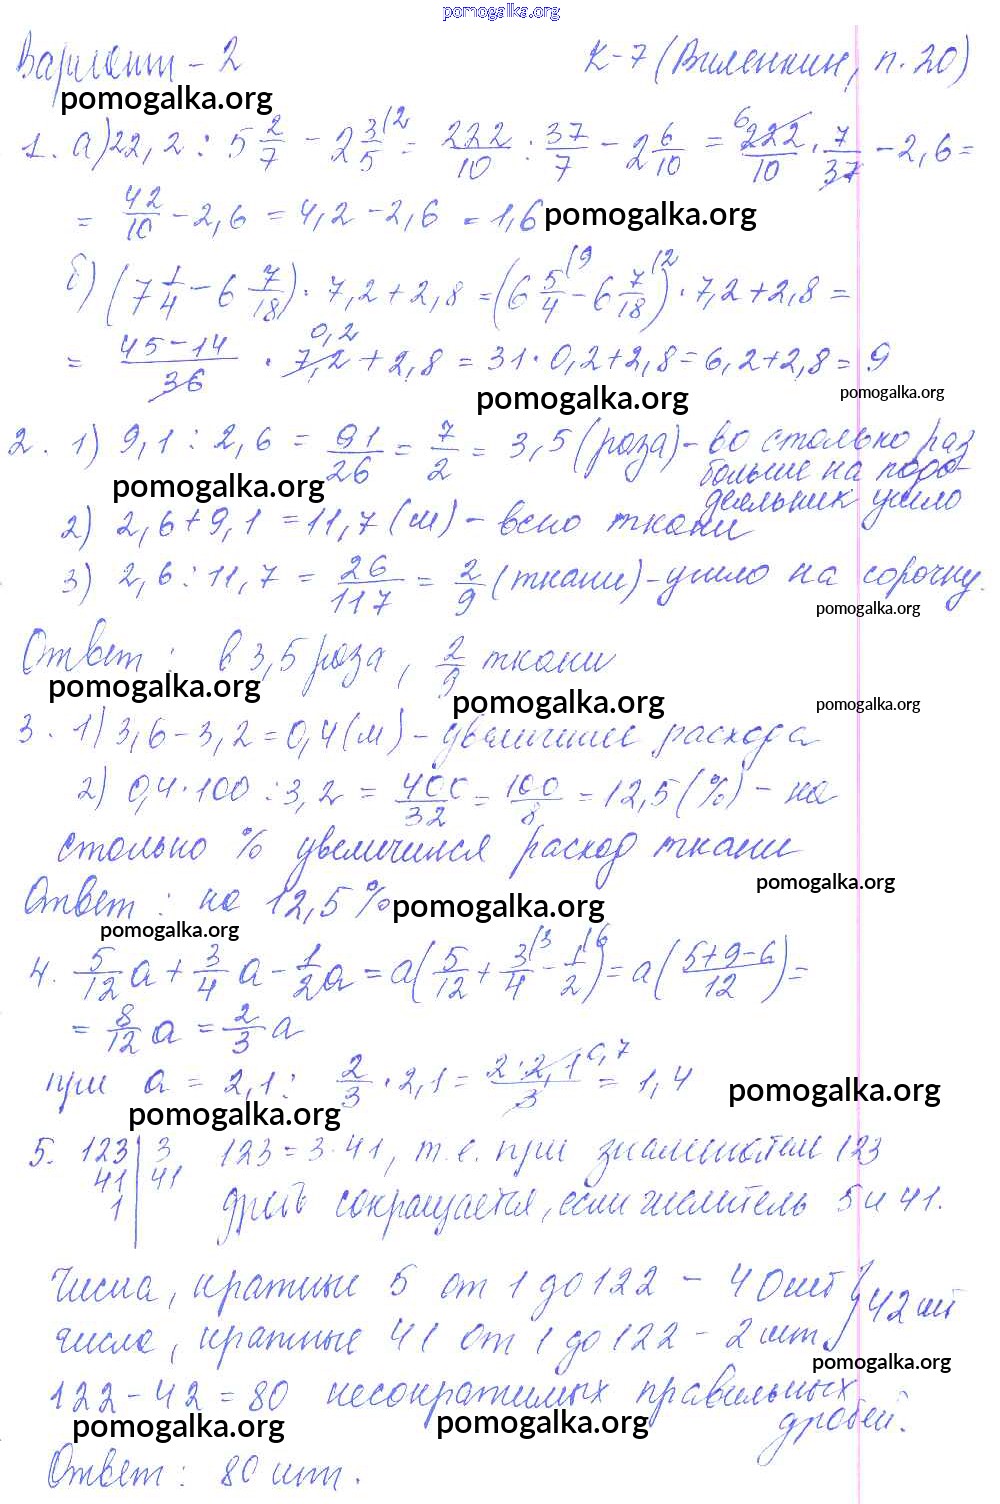 pomogalka.org
Вариант - 2 К-7 (Виленкин, п. 20)
pomogalka.org
1. а) 22,2 : 5 2/7 - 2 3/5 (2 = 222/10 : 37/7 - 2 6/10 = 6 222/10 · 7/37 - 2,6 =
= 42/10 - 2,6 = 4,2 - 2,6 = 1,6 pomogalka.org
б) (7 1/4 - 6 7/18) · 7,2 + 2,8 = (6 5/4 (9 - 6 7/18 (2) · 7,2 + 2,8 =
= 45-14/36 · 7,2 0,2 + 2,8 = 31 · 0,2 + 2,8 = 6,2 + 2,8 = 9
pomogalka.org pomogalka.org
2. 1) 9,1 : 2,6 = 91/26 = 7/2 = 3,5 (раза) - во столько раз
больше на подо-
pomogalka.org деяльник ушло
2) 2,6 + 9,1 = 11,7 (м) - всего ткани
3) 2,6 : 11,7 = 26/117 = 2/9 (ткани) - ушло на сорочку.
pomogalka.org
Ответ: в 3,5 раза, 2/9 ткани
pomogalka.org pomogalka.org pomogalka.org
3. 1) 3,6 - 3,2 = 0,4 (м) - увеличение расхода
2) 0,4 · 100 : 3,2 = 400/32 = 100/8 = 12,5 (%) - на
столько % увеличился расход ткани
pomogalka.org
Ответ: на 12,5 % pomogalka.org
pomogalka.org
4. 5/12 a + 3/4 a - 1/2 a = a (5/12 + 3/4 (3 - 1/2 (6) = a (5+9-6/12) =
= 8/12 a = 2/3 a
при a = 2,1 : 2/3 · 2,1 = 2 · 2,1 0,7/3 = 1,4
pomogalka.org pomogalka.org
5. 123 | 3 123 = 3 · 41, т.е. при знаменателе 123
41 | 41 дробь сокращается, если числитель 5 и 41.
1 |
Числа, кратные 5 от 1 до 122 - 40 шт } 42 шт
числа, кратные 41 от 1 до 122 - 2 шт
pomogalka.org
122 - 42 = 80 несократимых правильных
pomogalka.org pomogalka.org дробей.
Ответ: 80 шт.